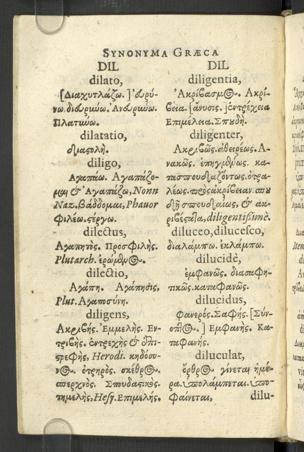 SYNONYMA GRÆCA
DIL
dilato,
[Διαχυτλάζω.] εὐρύ-
νω. διευρύνω. Ανευρύνω.
Πλατύνω.
dilatatio,
διαστολή.
diligo,
Αγαπάω. Αγαπάζο-
μαι & Αγαπάζω, Nonn
Naz. Phavor
Φιλέω. στέργω.
dilectus,
Αγαπητός. Προσφιλής.
Plutarch. ἐρώμενος.
dilectio,
Αγάπη. Αγάπησις,
Plut. Αγαποσύνη.
diligens,
Ακριβής. Εμμελής. Εν-
τριβής. ἐντρεχὴς & ἐπι-
στρεφής, Herodi. κηδόσυ-
νος. ὀτρηρός. σκεθρός.
σπερχνός. Σπυδαστικός.
τημελής, Hesy. Επιμελής.
DIL
diligentia,
Ακριβασμός. Ακρί-
βεια. [άνυσις.] ἐντρέχεια
Επιμέλεια. Σπυδή.
diligenter,
Ακριβῶς. Α-
νακῶς. κα-
τασπουδαζόντως. ὀτρα-
λέως. πρὸς ἀκρίβειαν. ὑπὸ
σπουδαίως, &
diligentissimè.
diluceo, dilucesco,
διαλάμπω. ἐκλάμπω.
dilucidè,
ἐμφανῶς. διασαφη-
τικῶς. κατεφανῶς.
dilucidus,
φανερός. Σαφής. [Σύν-
οπτος.] Εμφανής. Κα-
ταφανής.
diluculat,
ὄρθρος γίνεται ἡμέ-
ρα. ὑπολάμπεται. ὑπο-
φαίνεται, dilu-